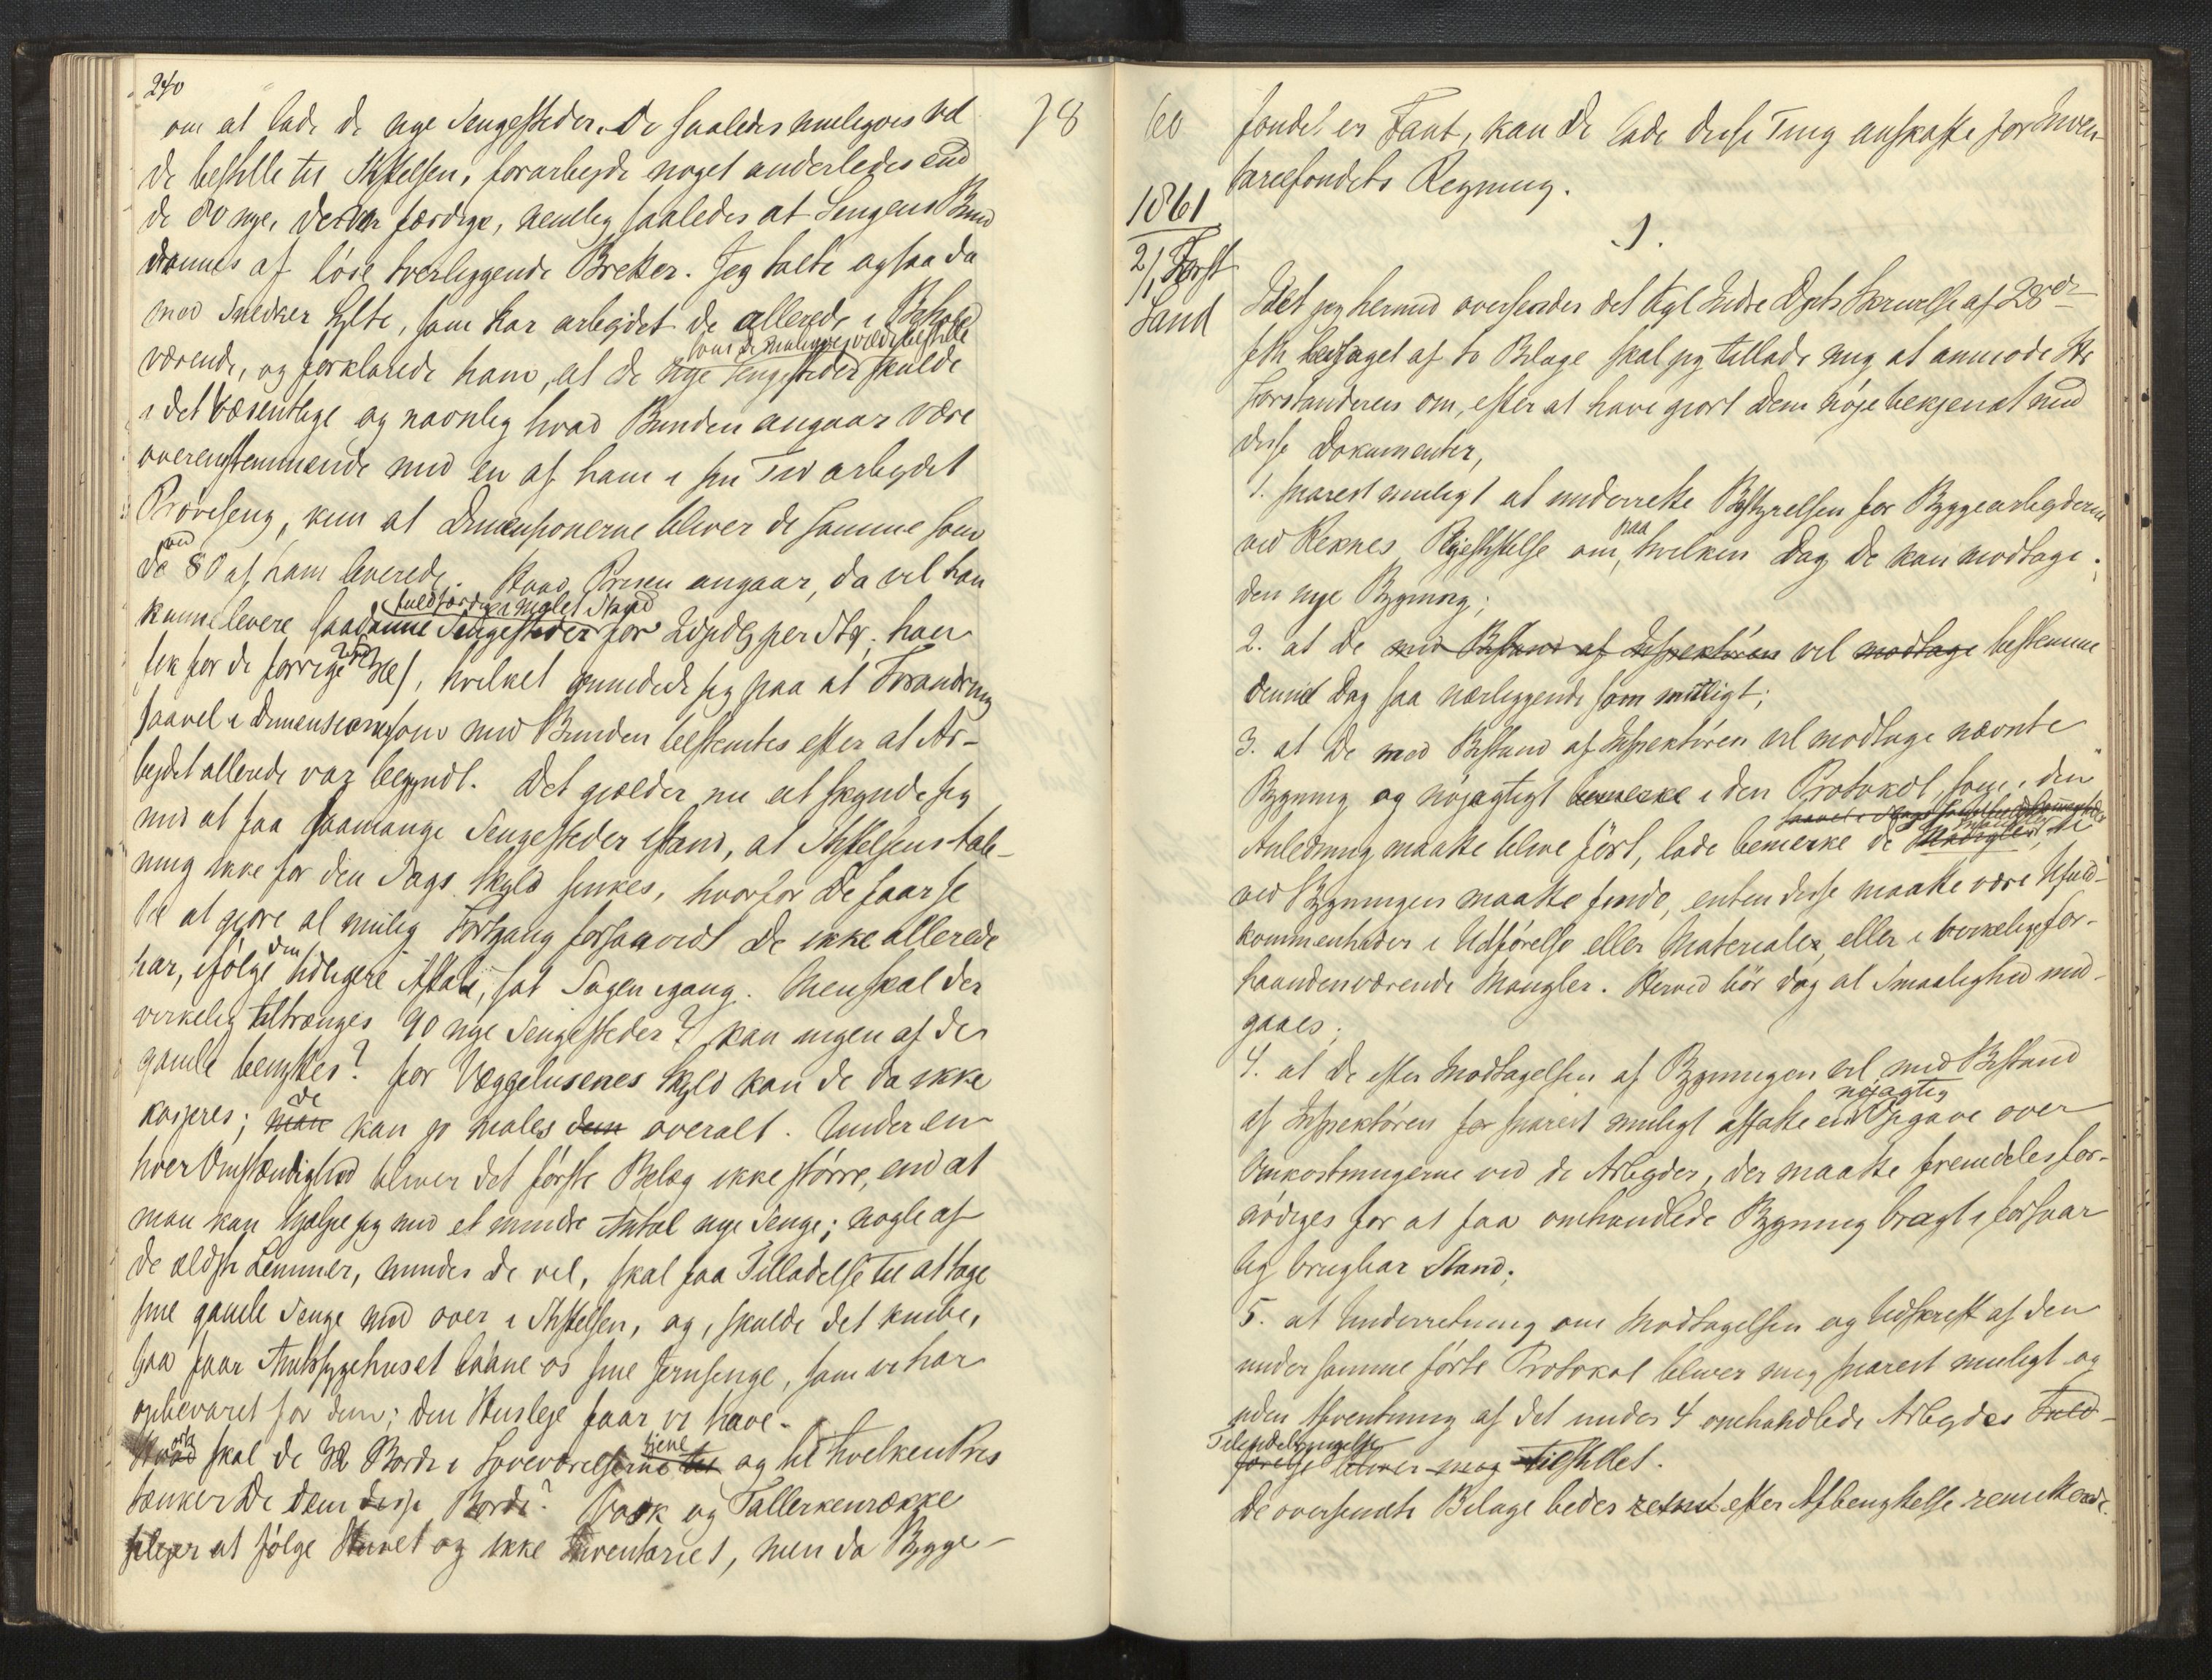 240
om at lade de nye Sengesteder, De saaledes muligvis vil
De bestille til Stiftelsen, forarbeyde noget anderledes end
de 80 nye, der var færdige, nemlig saaledes at Sengens Bund
dannes af löse tverliggende Bretter. Jeg talte ogsaa da
med Snedker Hylte, som har arbeydet de allerede i Behold
værende, og forklarede ham, at de nye Sengesteder skulde
som De muligvis vilde bestille
i det Væsentlige og navnlig hvad Bunden angaar være
overensstemmende med en af ham i sin Tid arbeydet
Pröveseng, kun at Dimensionerne bliver de samme som
ved
de 80 af ham leverede. Hvad Prisen angaar, da vil han
fuldfærdige i malet Stand
kunne levere saadanne Sengesteder for 2 Spdlr per Stk; han
fik for de forrige, hvilket grundede sig paa at Forandring
saavel i Dimensioner som med Bunden bestemtes efter at Ar-
beydet allerede var begyndt. Det gjælder nu at skynde sig
med at faa saamange Sengesteder istand, at Stiftelsens Aab-
ning ikke for den Sags Skyld sinkes, hvorfor De faar se
til at gjøre al mulig Fortgang forsaavidt De ikke allerede
den
har, ifølge tidligere Aftale, sat Sagen igang. Men skal der
virkelig tiltrænges 90 nye Sengesteder? kan ingen af de
gamle benyttes? for Væggelusenes Skyld kan de da ikke
de
kasseres; man kan jo males dem overalt. Under en-
hver Omstændighed bliver det förste Belæg ikke större, end at
man kan hjælpe sig med et mindre Antal nye Senge; nogle af
de ældste Lemmer, mindes De vel, skal faa Tilladelse til at tage
sine gamle Senge med over i Stiftelsen, og, skulde det knibe,
saa faar Amtssygehuset laane os sine Jernsenge, som vi har
opbevaret for dem; den Husleje faar vi have.
Hvad skal de 32 Borde i Soveværelserne til og til hvilken Pris
tjene
tænker De Dem disse Borde? Vask og Tallerkenrække
plejer at fölge Huset og ikke Inventariet, men da Bygge-
78
60
fondet er Fant, kan De lade disse Ting anskaffe for Inven-
tariefondets Regning.
1.
1861
2/1 Forst
Sand
Idet jeg hermed oversender det kgl Indre Dpts Skrivelse af 28de
f.M. ledsaget af to Bilage skal jeg tillade mig at anmode Hr
Forstanderen om, efter at have gjort Dem nöje bekjendt med
disse Dokumenter,
1. snarest muligt at underrette Bestyrelsen for Byggearbeyderne
ved Reknes Plejestiftelse om, paa hvilken Dag De kan modtage
den nye Bygning;
2. at De med Bistand af Inspektören vil modtage bestemme
denne Dag saa nærliggende som muligt;
3. at De med Bistand af Inspektören vil modtage nævnte
Bygning og nöjagtigt bemerke i den Protokol, som i den
Anledning maatte blive fört, lade bemerke de Mangler, De
ved Bygningen maatte finde, enten disse maatte være Ufuld-
kommenheder i Udförelse eller Materialer, eller i virkelige for-
haandenværende Mangler. Herved bör dog al Smaalighed und-
gaaes;
4. at De efter Modtagelsen af Bygningen vil med Bistand
nöjagtig
af Inspektören for snarest muligt affatte en Opgave over
Omkostningerne ved de Arbeyder, der maatte fremdeles for-
nödiges for at faa omhandlede Bygning bragt i forsvar-
lig brugbar Stand;
5. at Underretning om Modtagelsen og Udskrift af den
under samme förte Protokol bliver mig snarest muligt og
uden Afventning af det under 4 omhandlede Arbeydes Fuld-
Tilendebringelse
förelse bliver mig tilstillet.
De oversendte Bilage bedes retur efter Afbenyttelse remitterede.